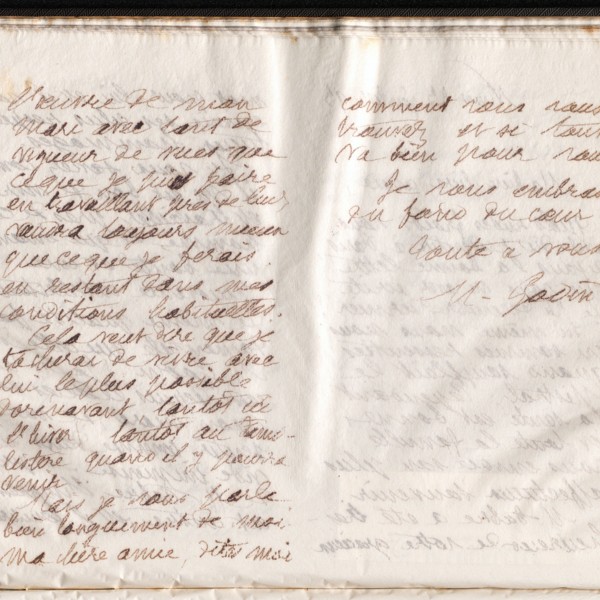 l'œuvre de mon
mari avec tant de
vigueur de vues que
ce que je puis faire
en travaillant près de lui
vaudra toujours mieux
que ce que je ferais
en restant dans mes
conditions habituelles.
Cela veut dire que je
tacherai de vivre avec
lui le plus possible
dorénavant tantôt ici
l'hiver tantôt au Fami-
listère quand il y pourra
venir
Mais je vous parle
bien longuement de moi
ma chère amie, dites moi
comment vous vous
trouvez et si tout
va bien pour vous
Je vous embrasse
du fond du cœur
Toute à vous
M. Godin